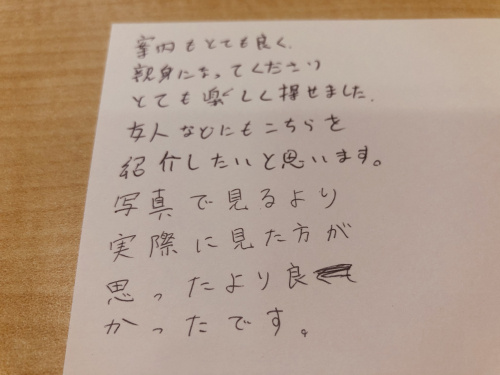 案内もとても良く、
親身になってください
とても楽しく探せました。
友人などにもこちらを
紹介したいと思います。
写真で見るより
実際に見た方が
思ったより良
かったです。